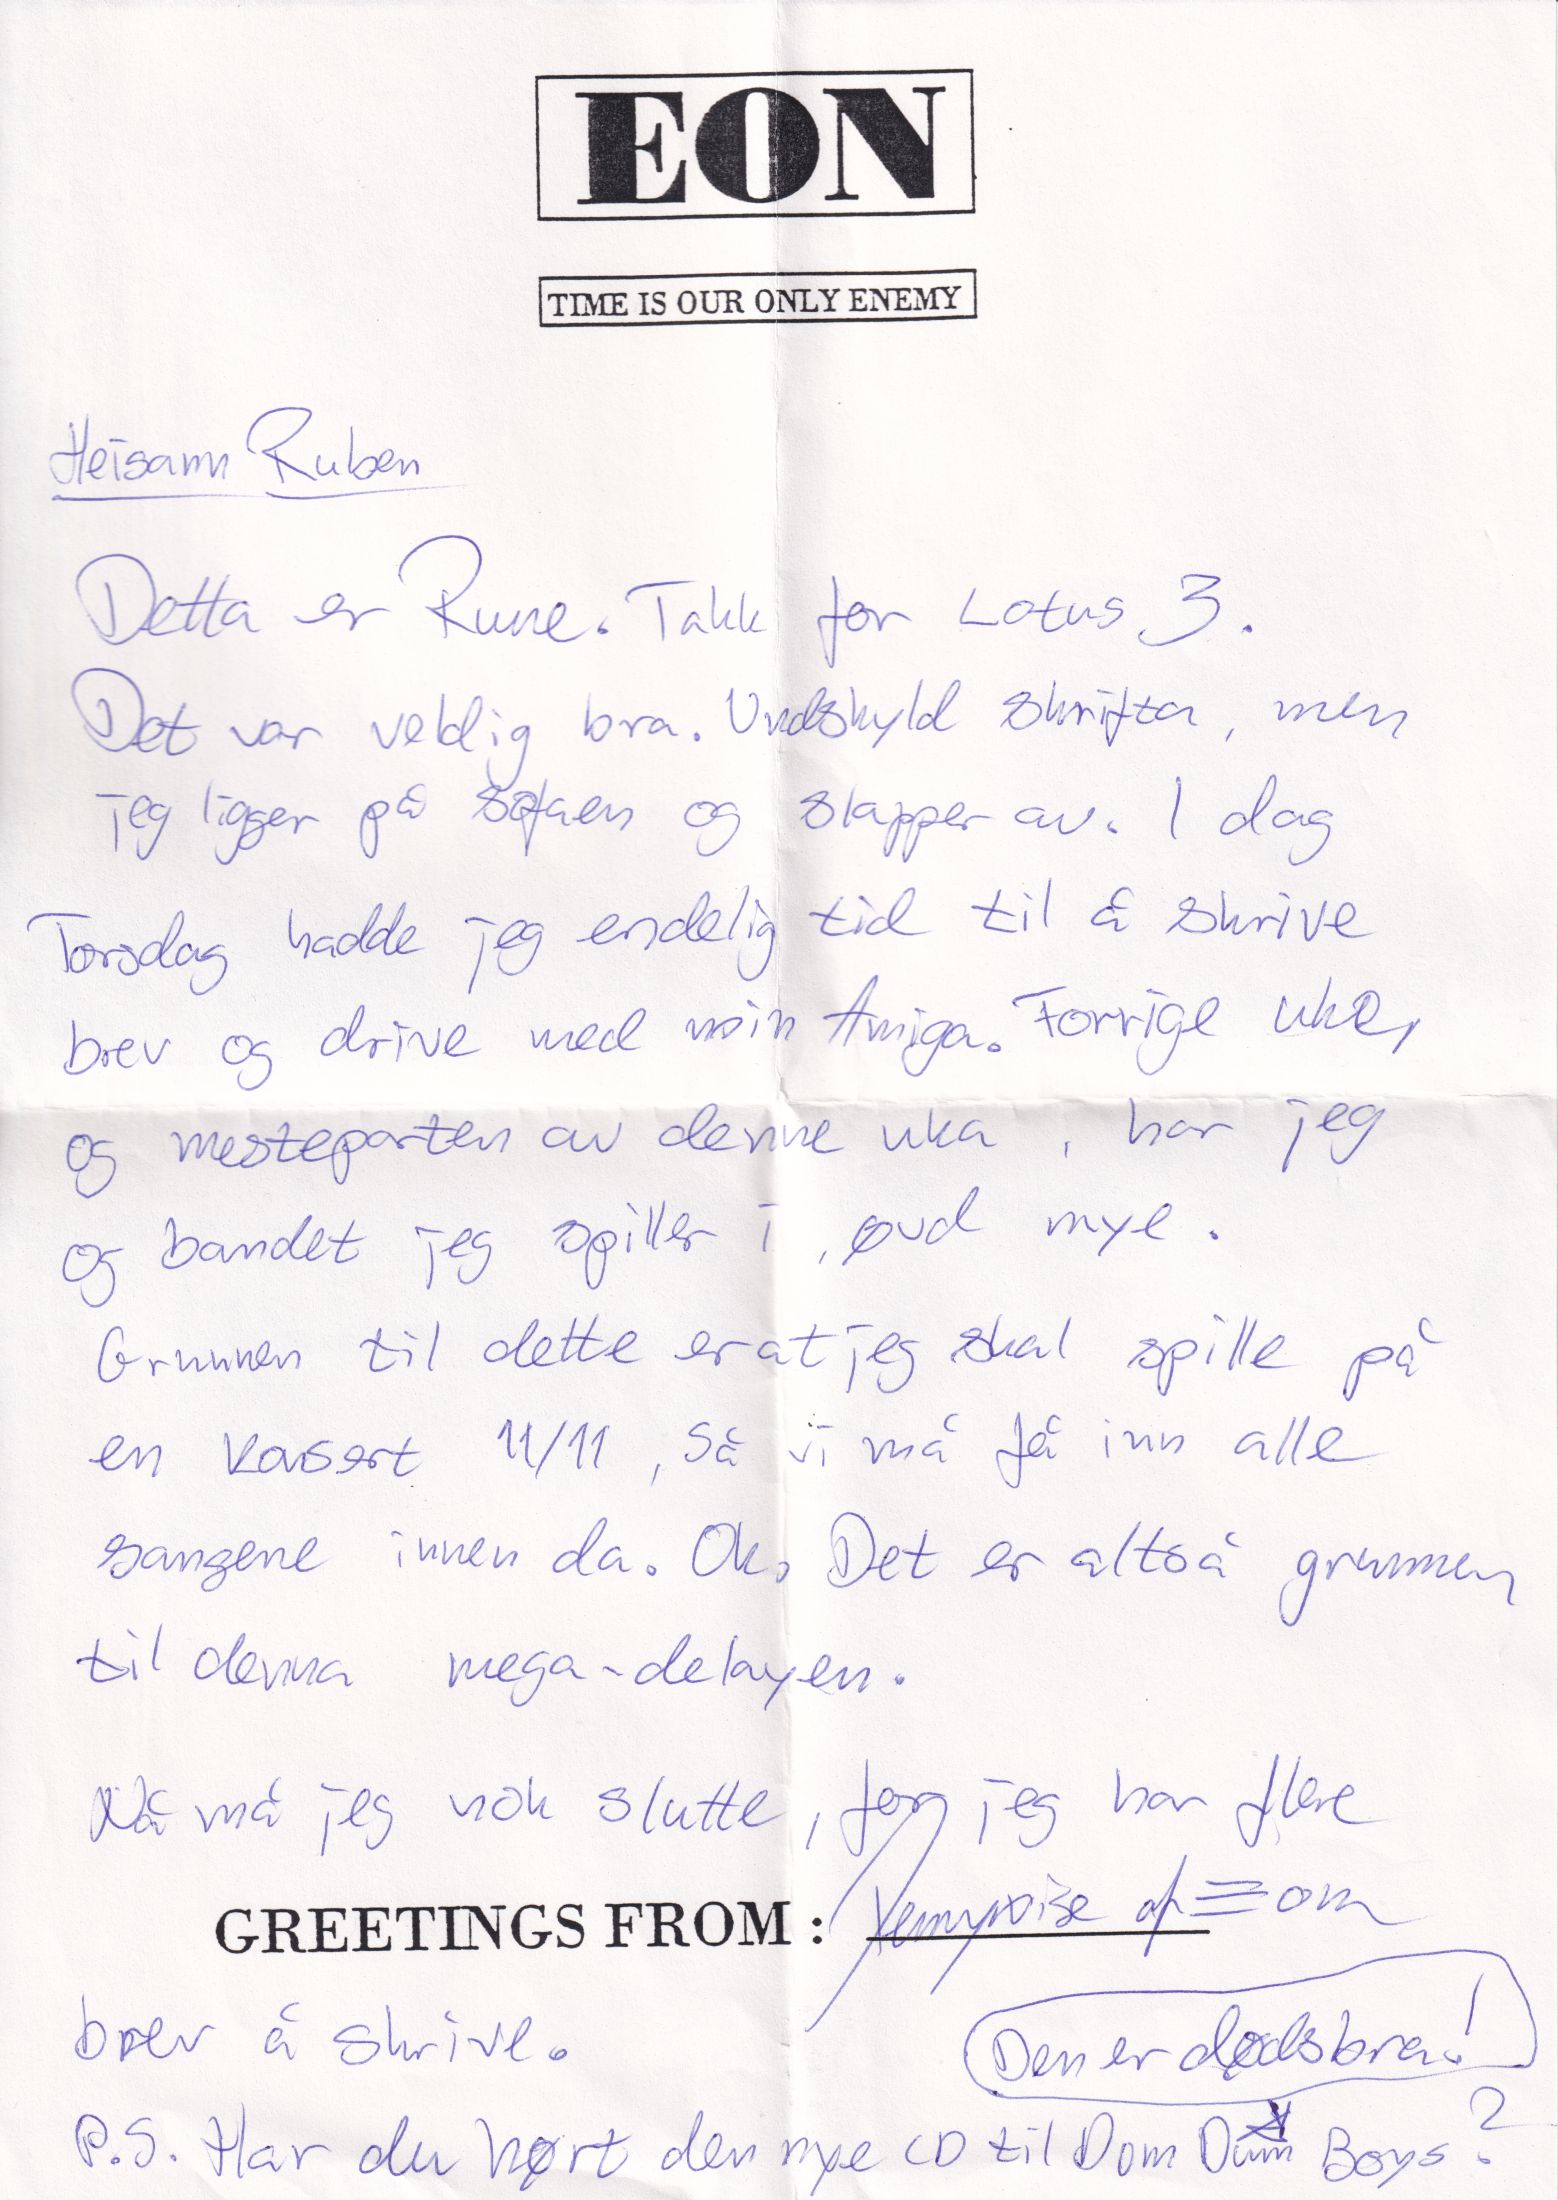 EON
TIME IS OUR ONLY ENEMY
Heisann Ruben
Detta er Rune. Takk for Lotus 3.
Det var veldig bra. Undskyld skrifta, men
jeg ligger på sofaen og slapper av. I dag
Torsdag hadde jeg endelig tid til å skrive
brev og drive med min Amiga. Forrige uke,
og mesteparten av denne uka, har jeg
og bandet jeg spiller i, øvd mye.
Grunnen til dette er at jeg skal spille på
en konsert 11/11, så vi må få inn alle
sangene innen da. Ok, Det er altså grunnen
til denna mega-delayen.
Nå må jeg nok slutte, for jeg har flere
GREETINGS FROM: Pennywise of Eon
brev å skrive.
Den er dødsbra!
P.S. Har du hørt den nye CD til Dom Dum Boys?